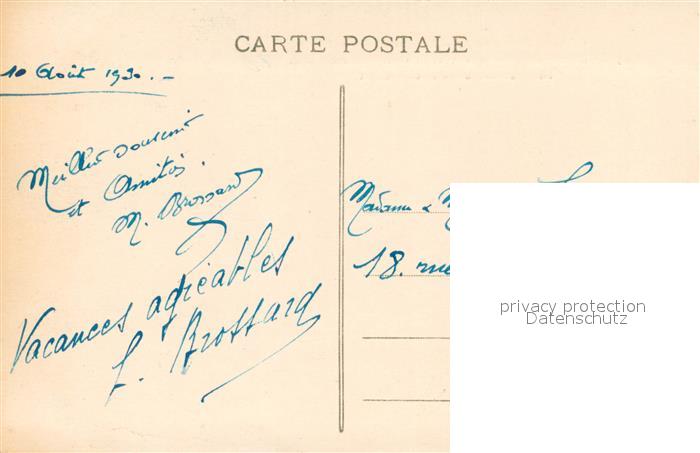 CARTE POSTALE
10 Août 1930.-
Meilleur souvenir
et Amitiés.
M. Brossard
Vacances agréables
f. Brossard
Madame & M
18. rue
privacy protection
Datenschutz